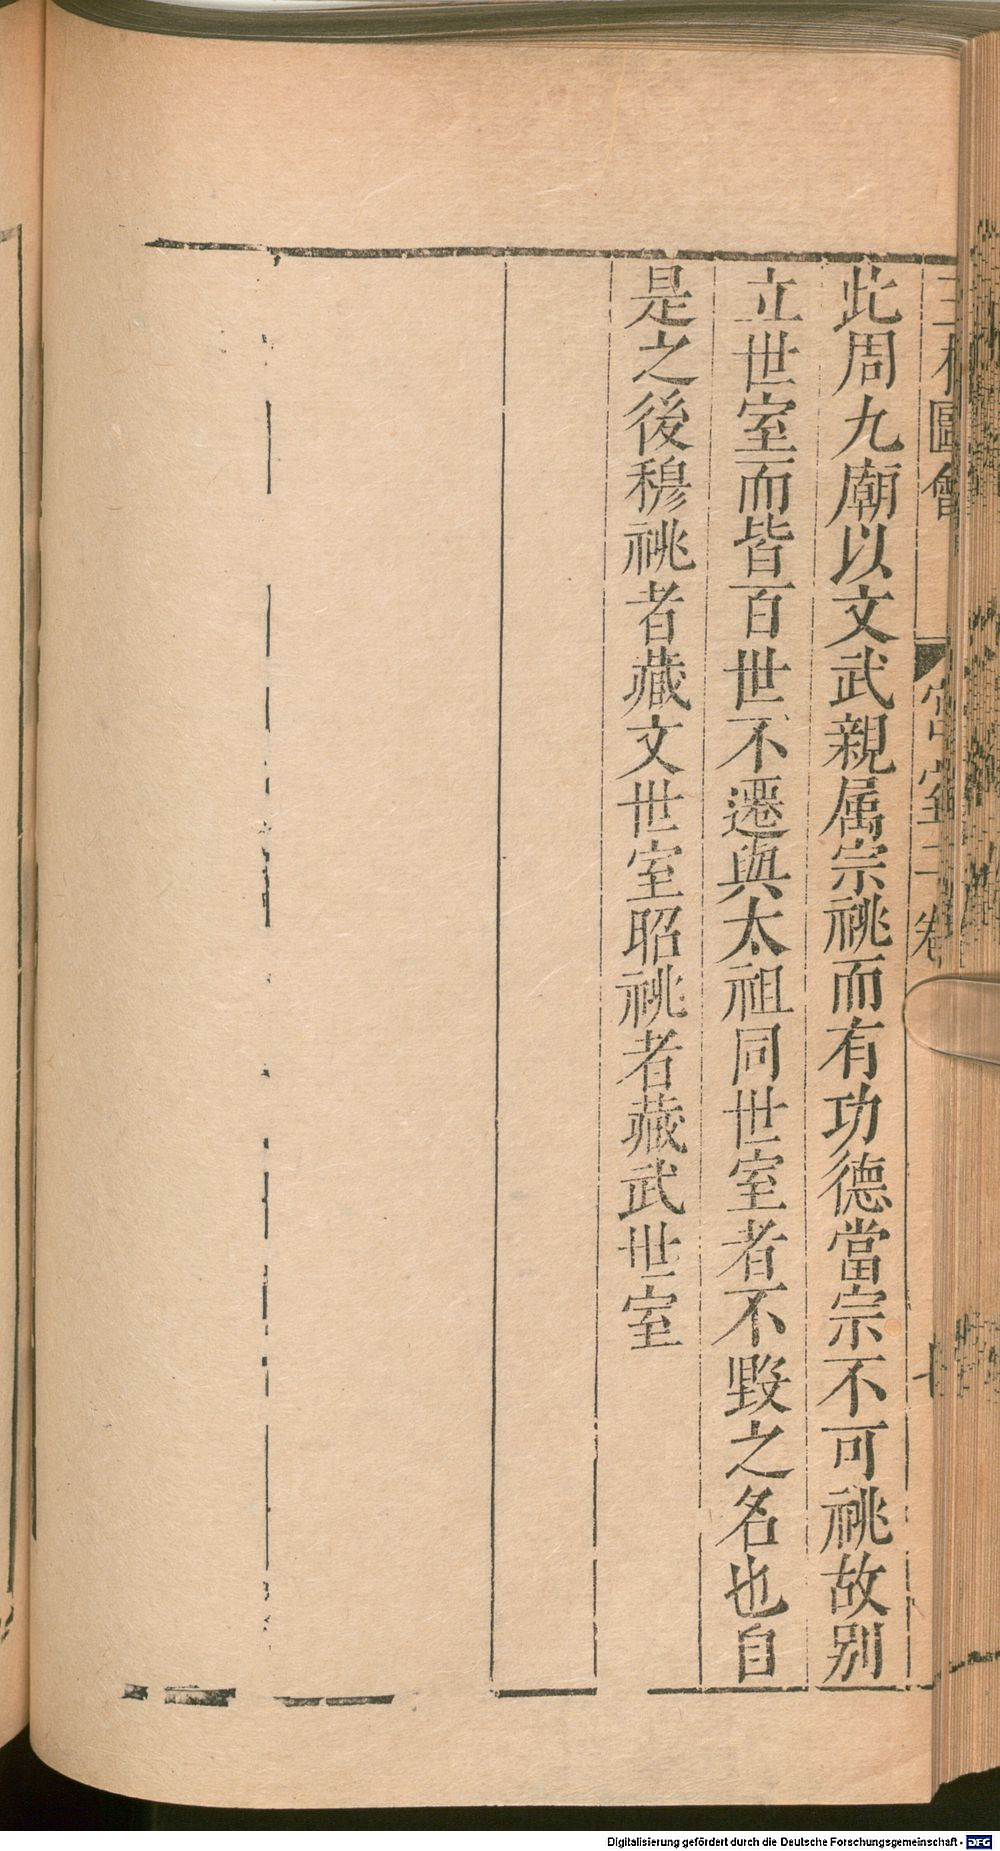 圖會
室二卷
此周九廟以文武親属宗祧而有功德當宗不可祧故别
立世室而皆百世不遷與太祖同世室者不毀之名也自
是之後穆祧者藏文世室昭祧者藏武世室
Digitalisierung gefördert durch die Deutsche Forschungsgemeinschaft - DFG